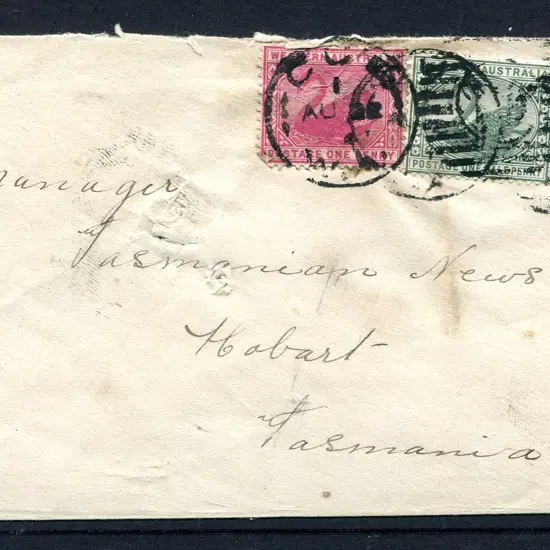 WESTERN AUSTRALIA
AUSTRALIA
1
AU 22
POSTAGE ONE PENNY
POSTAGE HALFPENNY
Manager
Tasmanian News
Hobart
Tasmania